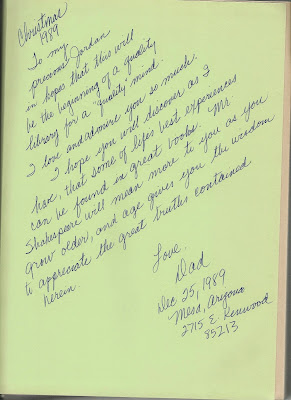 Christmas
1989
To my
precious Jordan
in hopes that this will
be the beginning of a quality
library for a "quality" mind.
I love and admire you so much.
I hope you will discover as I
have, that some of lifes best experiences
can be found in great books. Mr
Shakespeare will mean more to you as you
grow older, and age gives you the wisdom
to appreciate the great truths contained
herein.
Love,
Dad
Dec 25, 1989
Mesa, Arizona
2715 E. Kenwood
85213